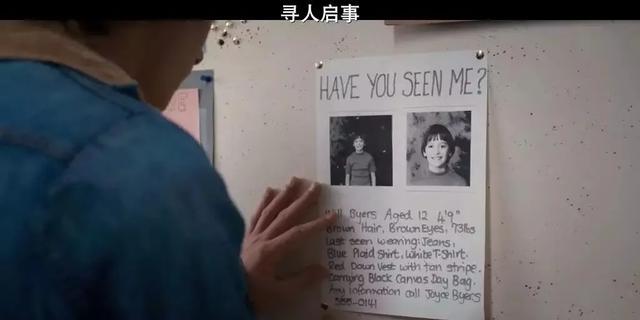 寻人启事
HAVE YOU SEEN ME?
Will Byers Aged 12 4'9"
Brown Hair, Brown Eyes, 73lbs
Last seen wearing: Jeans,
Blue Plaid Shirt, White T-Shirt.
Red Down Vest with tan stripe.
Carrying Black Canvas Day Bag.
Any information call Joyce Byers
555-0141